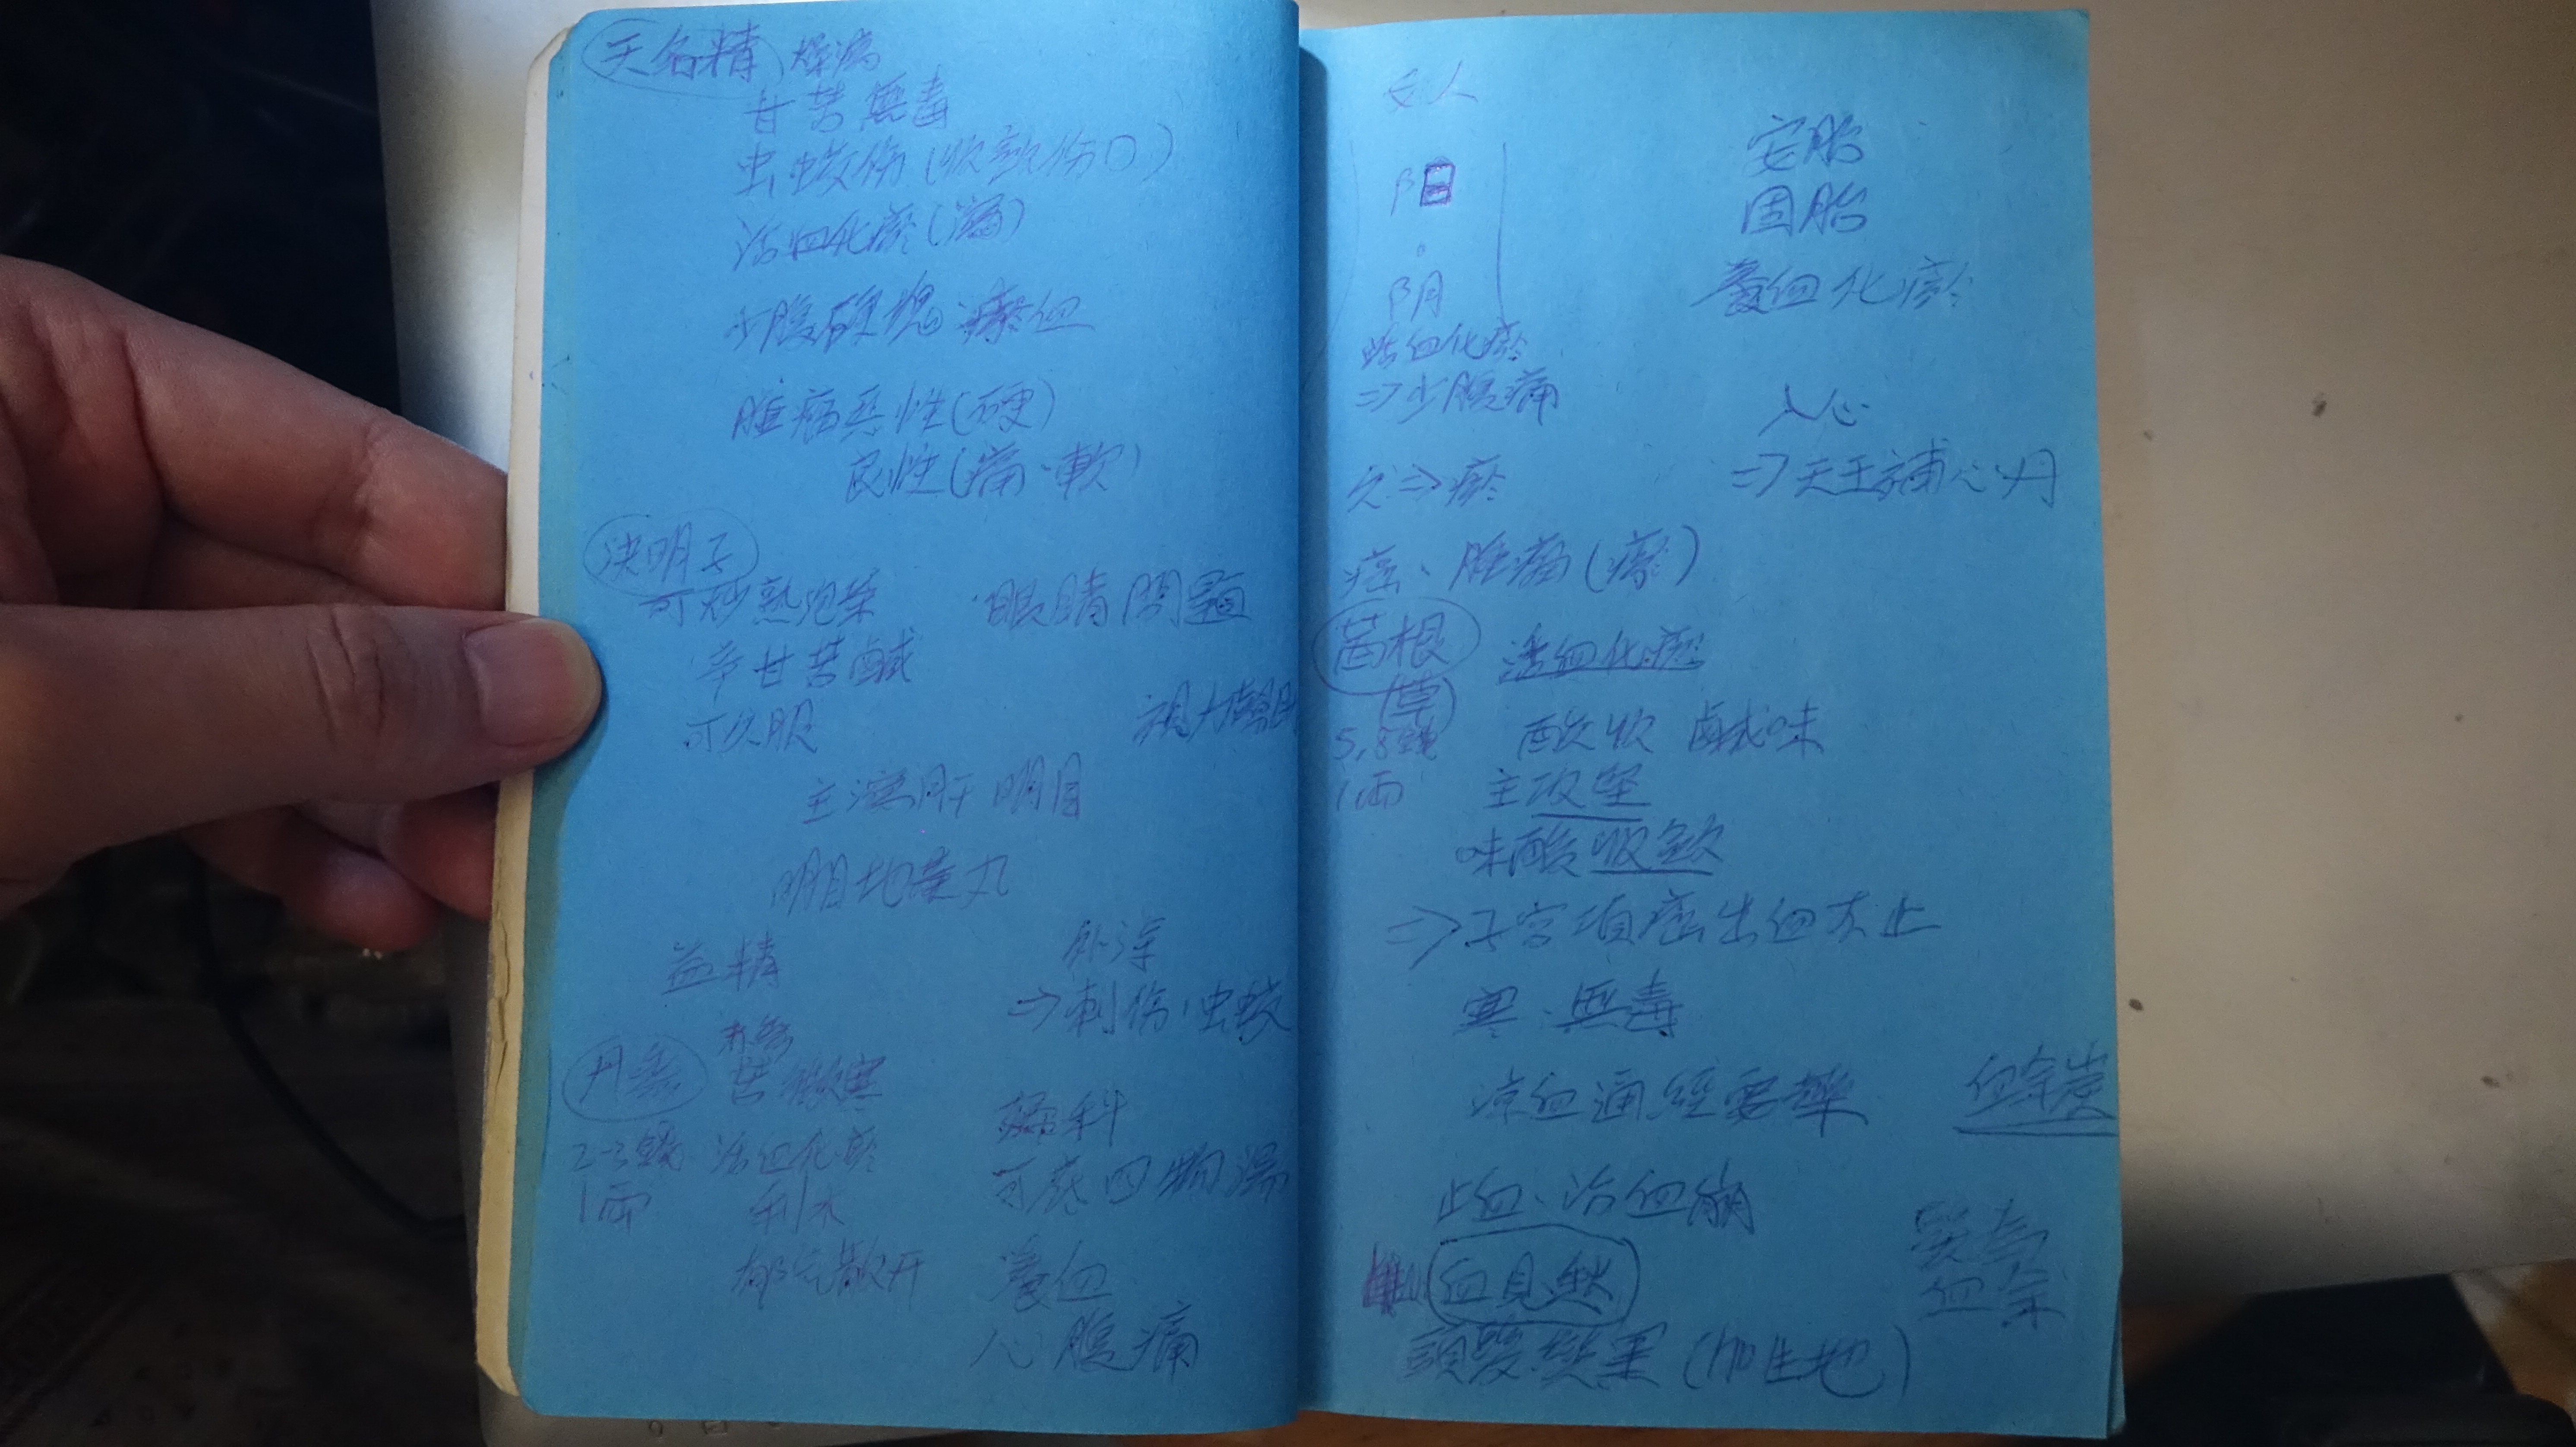 天名精
甘苦無毒
虫蚊伤(收歛伤口)
活血化瘀(瀉)
少腹硬塊 瘀血
腫瘤恶性(硬)
良性(痛、軟)
決明子
可炒熟泡茶 眼睛問題
辛甘苦鹹
可久服
視力
主瀉肝 明目
明目地黃丸
益精
外塗
⇒刺伤、虫蚊
丹參
苦微寒
2-3錢 活血化瘀
1両 利水
郁气散开
婦科
四物湯
養血
心腹痛
女人
阳
阴
活血化瘀
⇒少腹痛
欠⇒瘀
癌、腫瘤(瘀)
安胎
固胎
養血化瘀
入心
⇒天王補心丹
茜根
(草)
活血化瘀
5,8錢
1両
酸收 鹹味
主攻坚
味酸收歛
⇒子宫頸癌出血不止
寒、無毒
凉血通經要藥
止血、治血崩
血見愁
頭髮變黑(加生地)
血余炭
血余